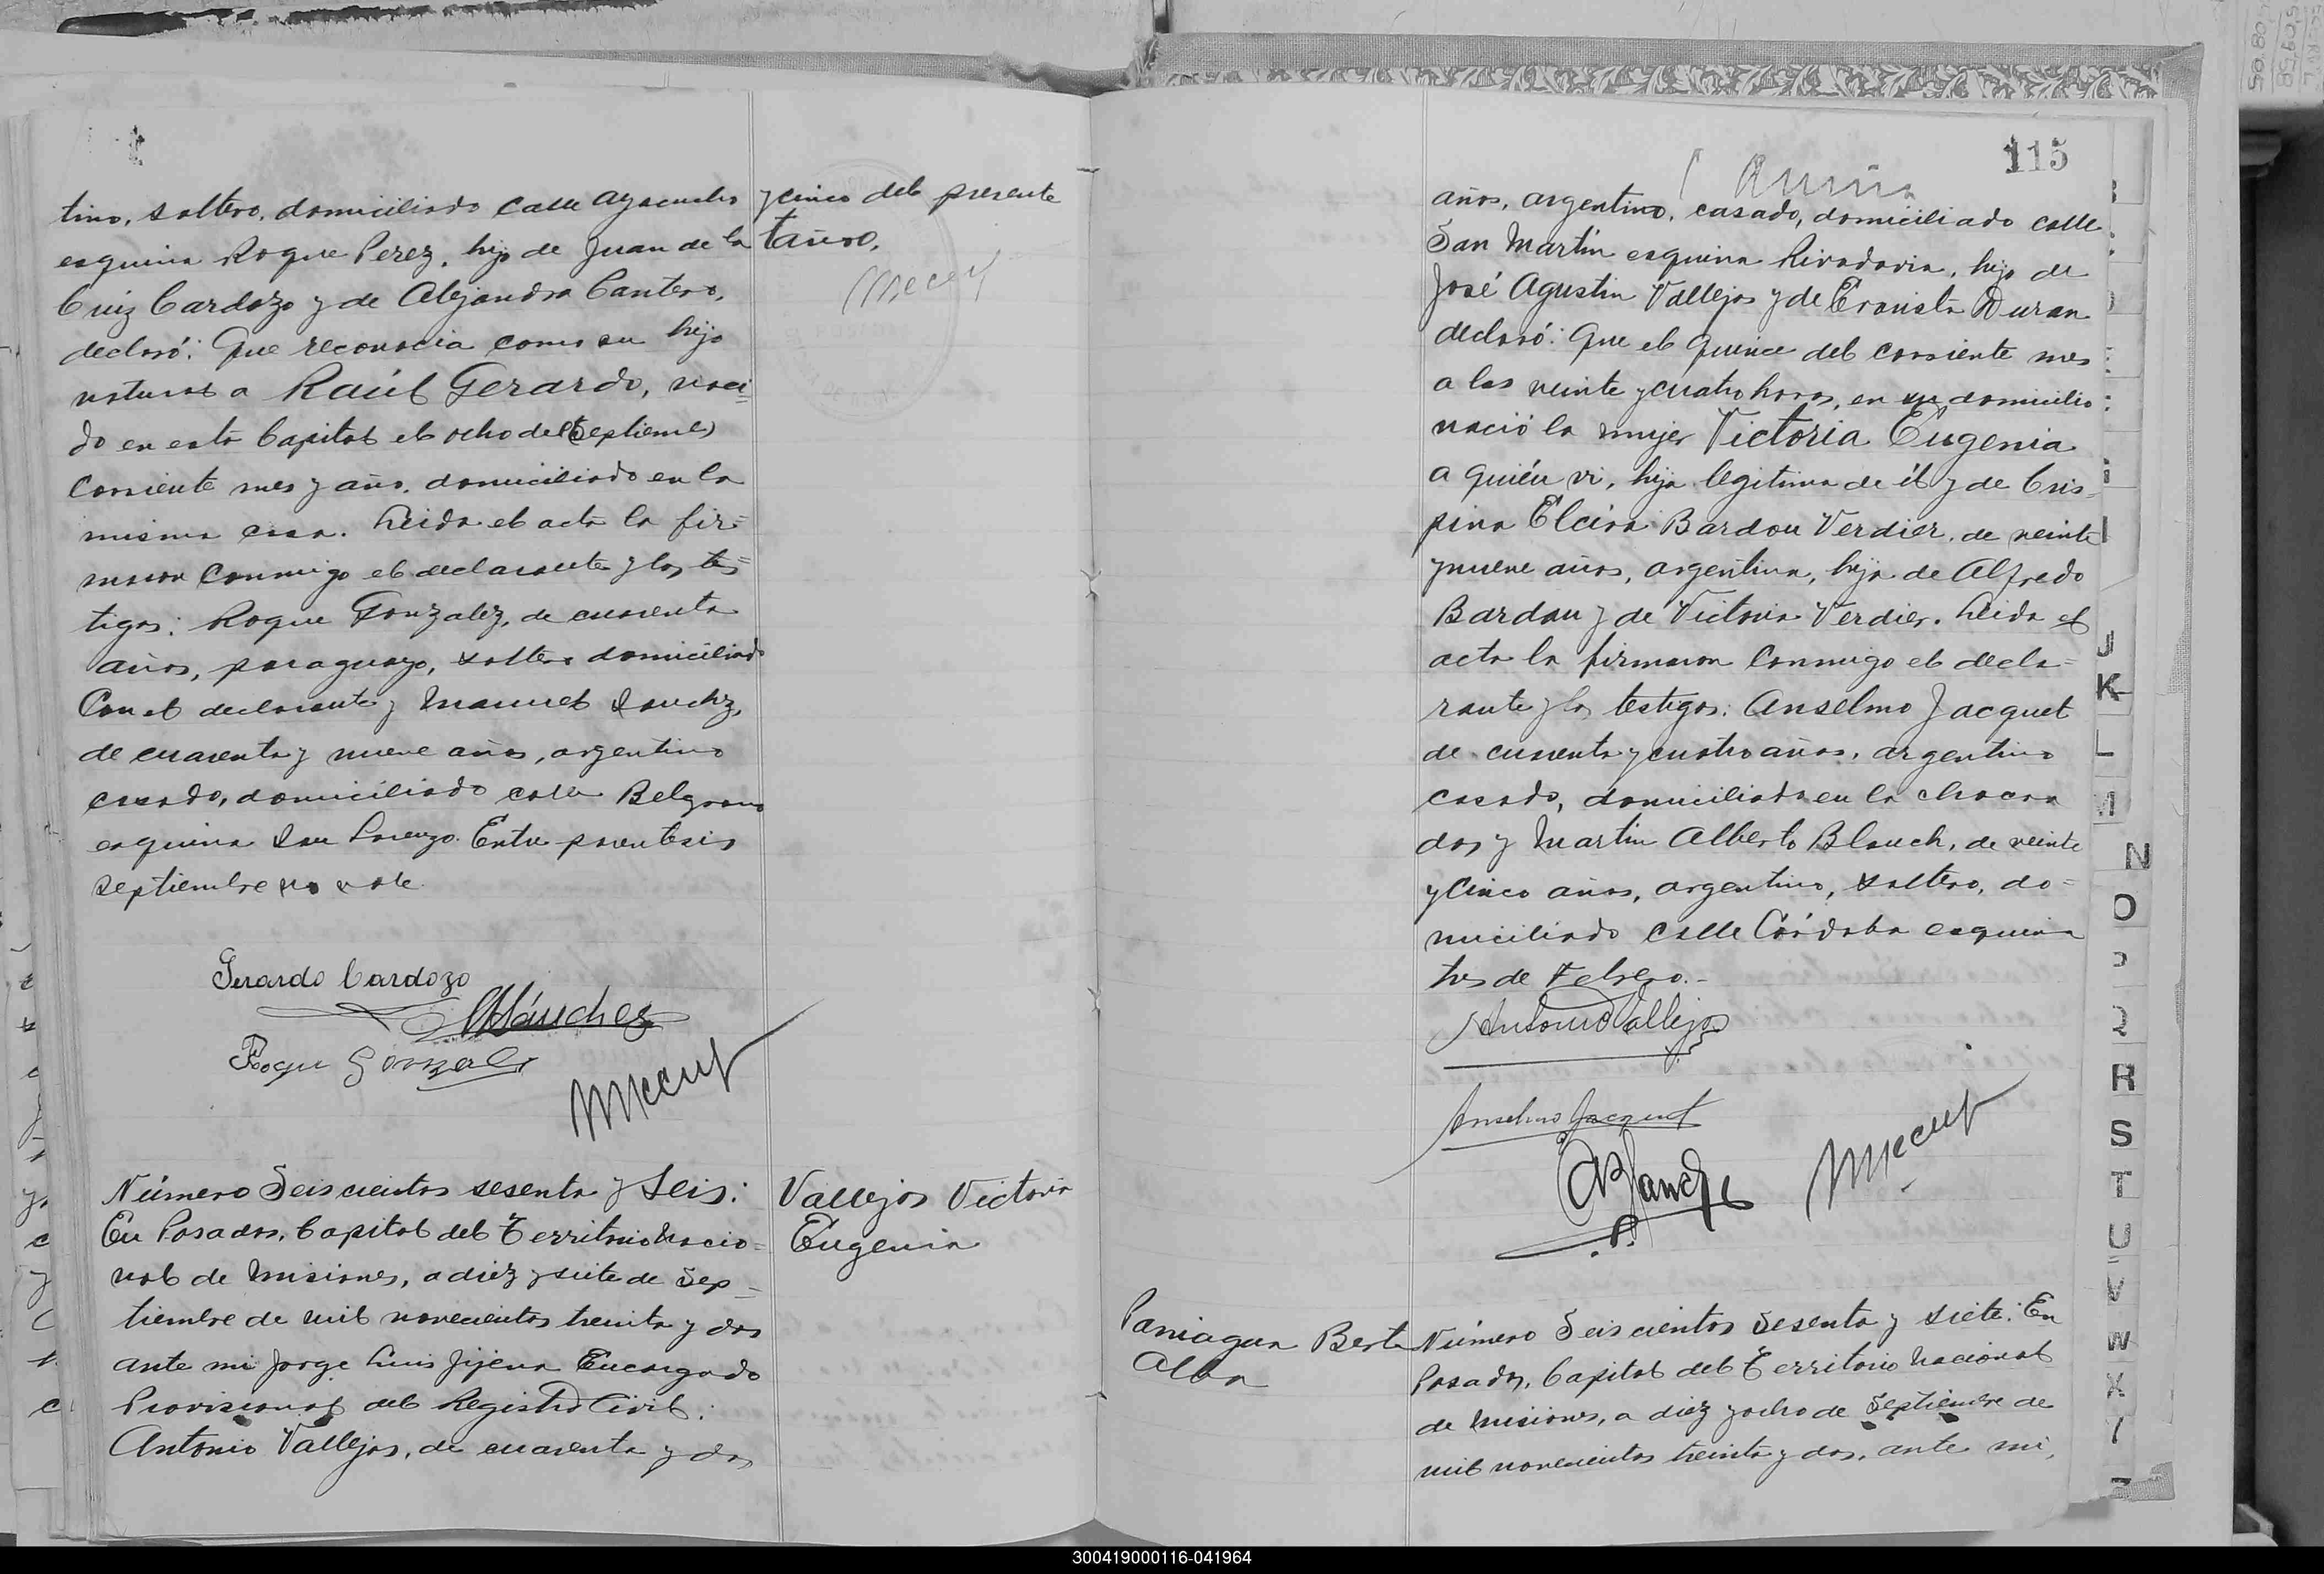 tino, soltero, domiciliado calle Ayacucho
esquina Roque Perez, hijo de Juan de la
Cruz Cardozo y de Alejandra Cantero,
declaró: Que reconocia como su hijo
natural a Raúl Gerardo, naci=
do en esta Capital el ocho del (Septiembre)
corriente mes y año, domiciliado en la
misma casa. Leida el acta la fir=
maron conmigo el declarante y los tes=
tigos: Roque Gonzalez, de cuarenta
años, paraguayo, soltero domiciliado
con el declarante y Manuel Sanchez,
de cuarenta y nueve años, argentino
casado, domiciliado calle Belgrano
esquina San Lorenzo. Entre parentesis
septiembre no vale
Gerardo Cardozo
MSánchez
Roque Gonzalez
y cinco del presente
tavo.
Número Seiscientos sesenta y seis:
En Posadas, Capital del Territorio Nacio=
nal de Misiones, a diez y siete de Sep=
tiembre de mil novecientos treinta y dos
ante mi Jorge Luis Jijena Encargado
Provisional del Registro Civil:
Antonio Vallejos, de cuarenta y dos
Vallejos Victoria
Eugenia
115
años, argentino, casado, domiciliado calle
San Martín esquina Rivadavia, hijo de
José Agustin Vallejos y de Evarista Duran
declaró: Que el quince del corriente mes
a las veinte y cuatro horas, en su domicilio
nació la mujer Victoria Eugenia
a quién vi, hija legitima de él y de Cris=
pina Elcira Bardou Verdier, de veinte
y nueve años, argentina, hija de Alfredo
Bardou y de Victoria Verdier. Leida el
acta la firmaron conmigo el decla=
rante y los testigos: Anselmo Jacquet
de cuarenta y cuatro años, argentino
casado, domiciliado en la chacra
dos y Martin Alberto Blanch, de veinte
y cinco años, argentino, soltero, do=
miciliado calle Córdoba esquina
tres de Febrero.-
Antonio Vallejos
Anselmo Jacquet
Paniagua Berta
Alba
Número Seiscientos Sesenta y siete: En
Posadas, Capital del Territorio Nacional
de Misiones, a diez y ocho de Septiembre de
mil novecientos treinta y dos, ante mi,
J
K
L
M
N
O
P
Q
R
S
T
U
V
W
X
Y
Z
300419000116-041964